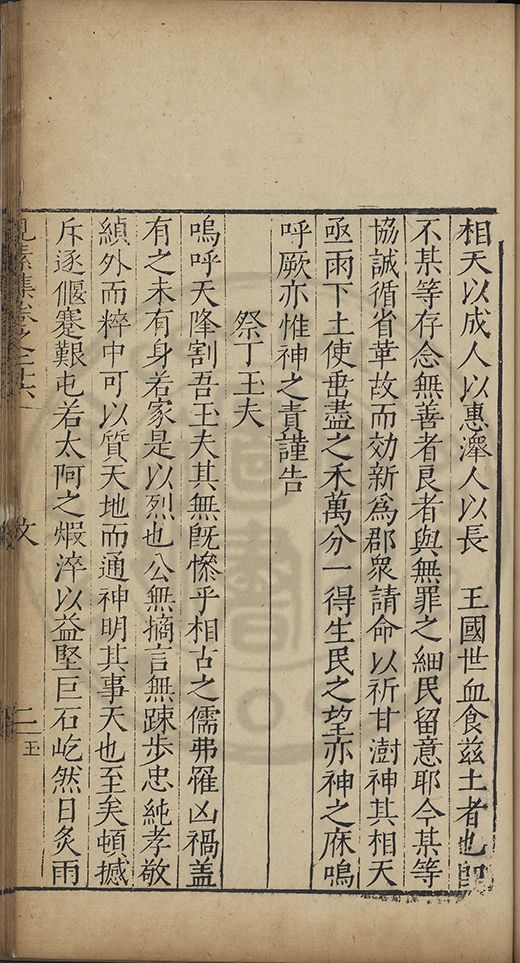 相天以成人以惠澤人以長　王國世血食茲土者也
不某等存念無善者良者與無罪之細民留意耶今某等
協誠循省革故而効新爲郡衆請命以祈甘澍神其相天
亟雨下土使垂盡之禾萬分一得生民之望亦神之庥嗚
呼厥亦惟神之責謹告
祭丁玉夫
嗚呼天降割吾玉夫其無旣慘乎相古之儒弗罹凶禍蓋
有之未有身若家是以烈也公無擿言無踈步忠純孝敬
縝外而粹中可以質天地而通神明其事天也至矣頓撼
斥逐偃蹇艱屯若太阿之煆淬以益堅巨石屹然日炙雨
見素集卷之二十六
文
二
玉